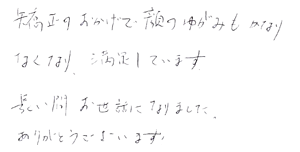 矯正のおかげで顔のゆがみもかなり
なくなり、満足しています
長い間お世話になりました。
ありがとうございます。